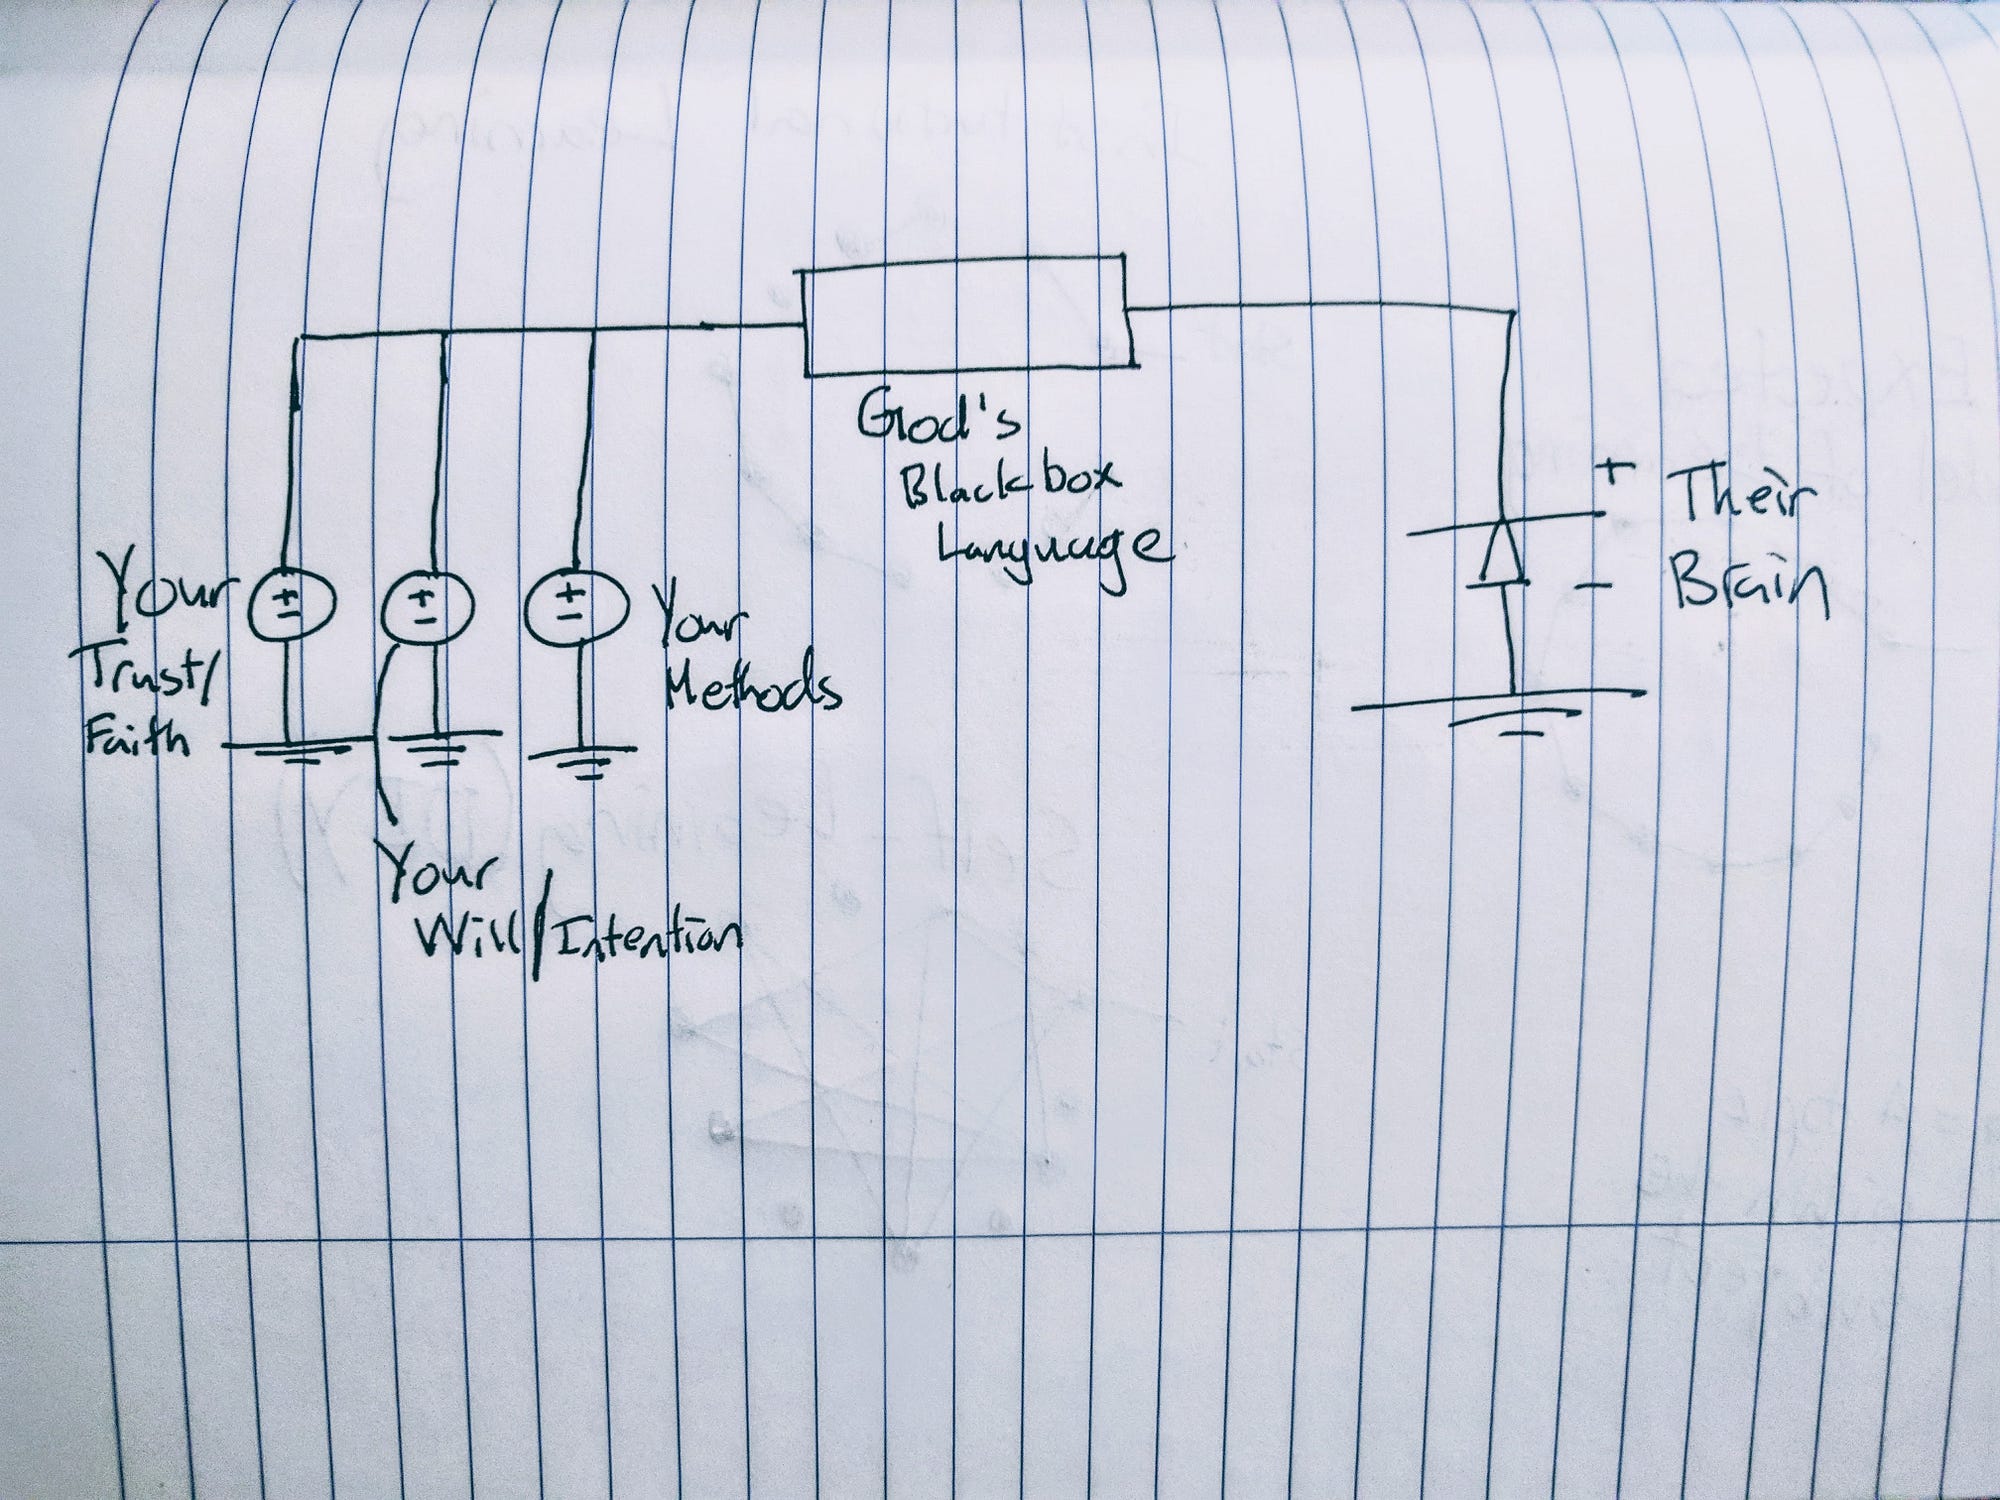 God's
Blackbox
Language
+ Their
- Brain
Your
Trust/
Faith
+
-
+
-
+
-
Your
Methods
Your
Will/Intention